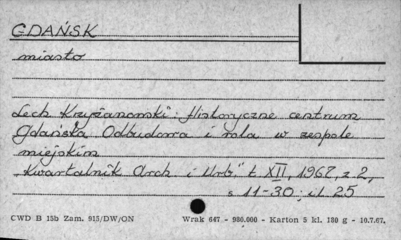 GDAŃSK
miasto
Lech Krzyżanowski: Historyczne centrum
Gdańska Odbudowa i rola w zespole
miejskim
"Kwartalnik Arch. i Urb." t. XII, 1967, z. 2,
s 11-30; il. 25
CWD B 15b Zam. 915/DW/ON Wrak 647 - 980.000 - Karton 5 kl. 180 g - 10.7.67.